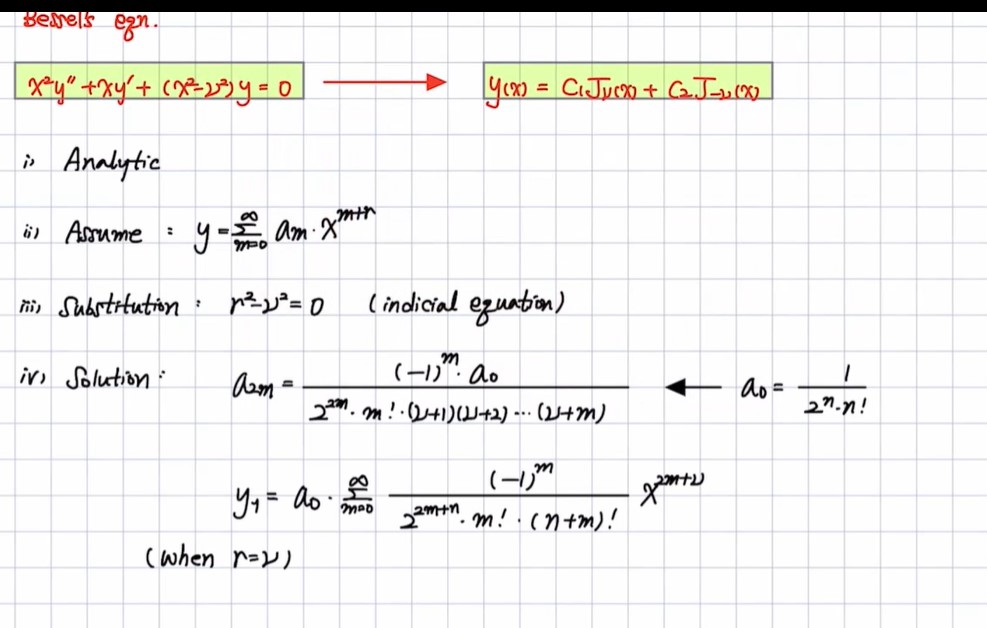 Bessel's eqn.
x²y″ + xy′ + (x²-ν²)y = 0 → y(x) = C₁Jν(x) + C₂J-ν(x)
i) Analytic
ii) Assume : y = ∑_{m=0}^{∞} aₘ · x^{m+r}
iii) Substitution : r²-ν² = 0 (indicial equation)
iv) Solution : a₂ₘ = \frac{(-1)^m · a₀}{2^{2m} · m! · (ν+1)(ν+2) ··· (ν+m)} ← a₀ = \frac{1}{2^n · n!}
y₁ = a₀ · ∑_{m=0}^{∞} \frac{(-1)^m}{2^{2m+n} · m! · (n+m)!} x^{2m+ν}
(when r=ν)